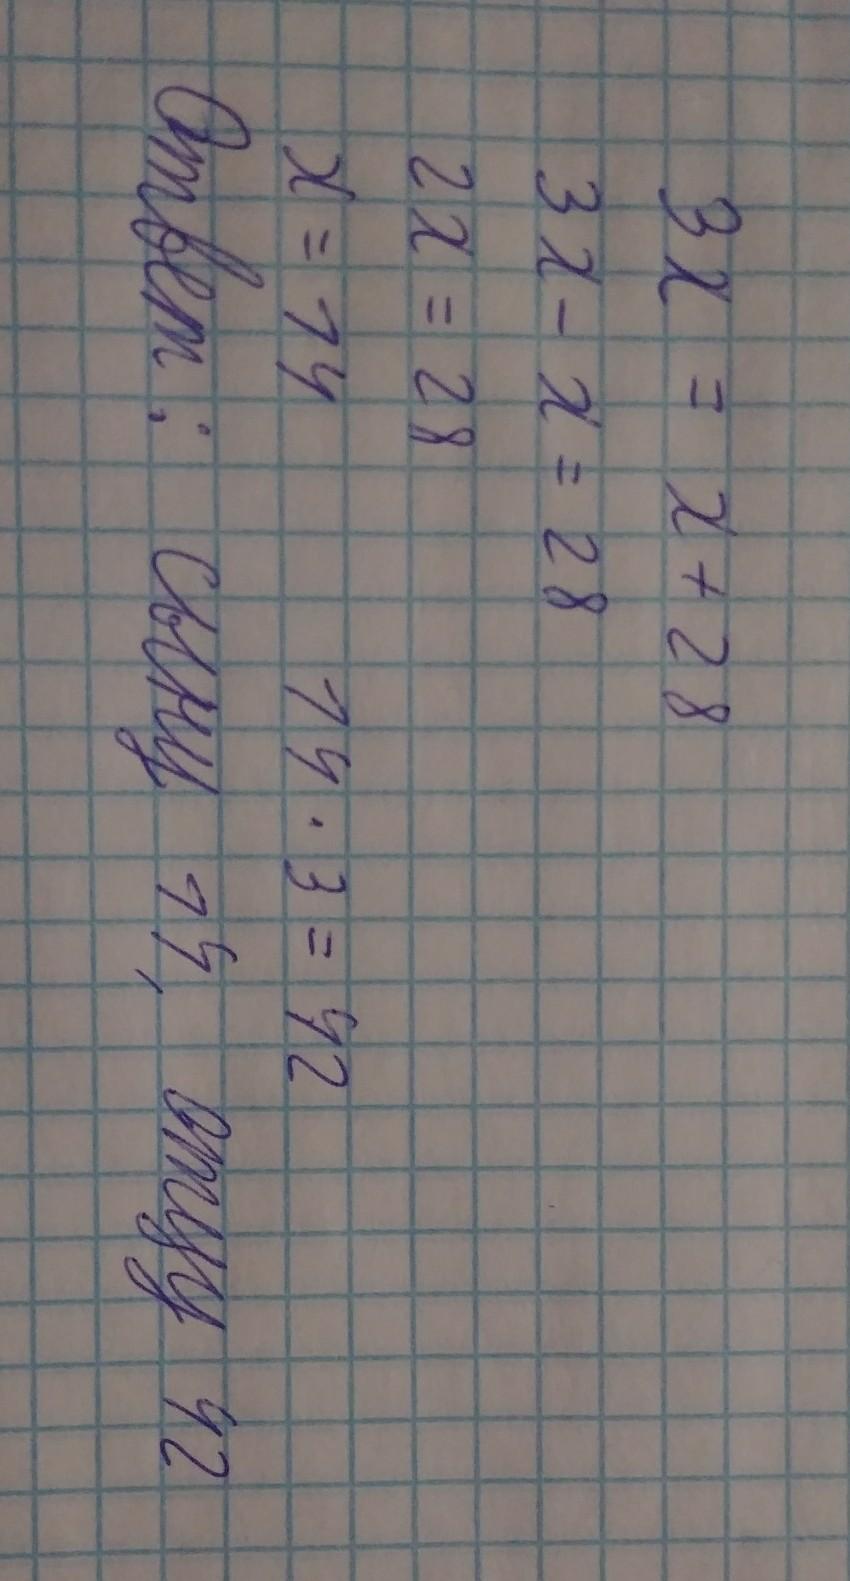 3x = x + 28
3x - x = 28
2x = 28
x = 14 14 · 3 = 42
Ответ: Сыну 14, отцу 42